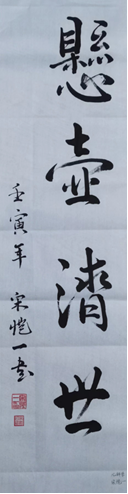 懸壺濟世
壬寅年 宋愷一書